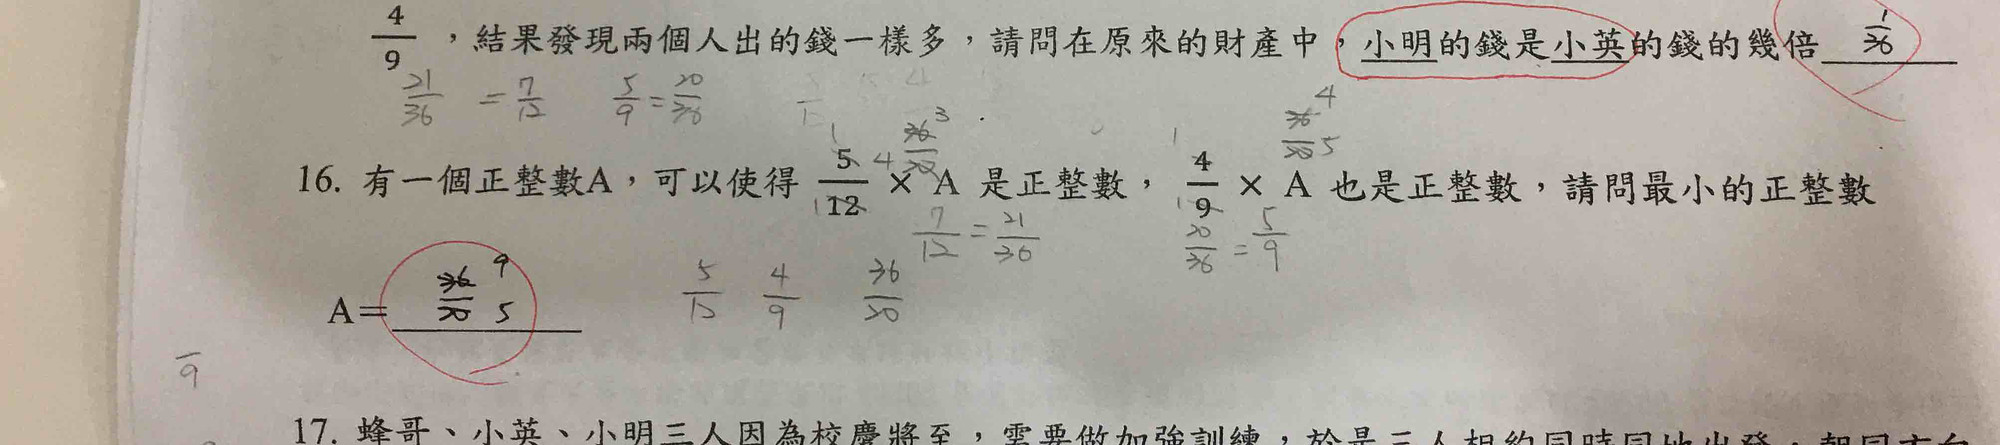 4/9，結果發現兩個人出的錢一樣多，請問在原來的財產中，小明的錢是小英的錢的幾倍 1/36
21/36 = 7/12 5/9 = 20/36
36/20 3 36/20 4 5
16. 有一個正整數A，可以使得 5/12 × A 是正整數， 4/9 × A 也是正整數，請問最小的正整數
7/12 = 21/36 20/36 = 5/9
A= 36/20 9 5 5/12 4/9 36/20
9
17. 蜂哥、小英、小明三人因為校慶將至，需要做加強訓練，於是三人相約同時同地出發，朝同方向